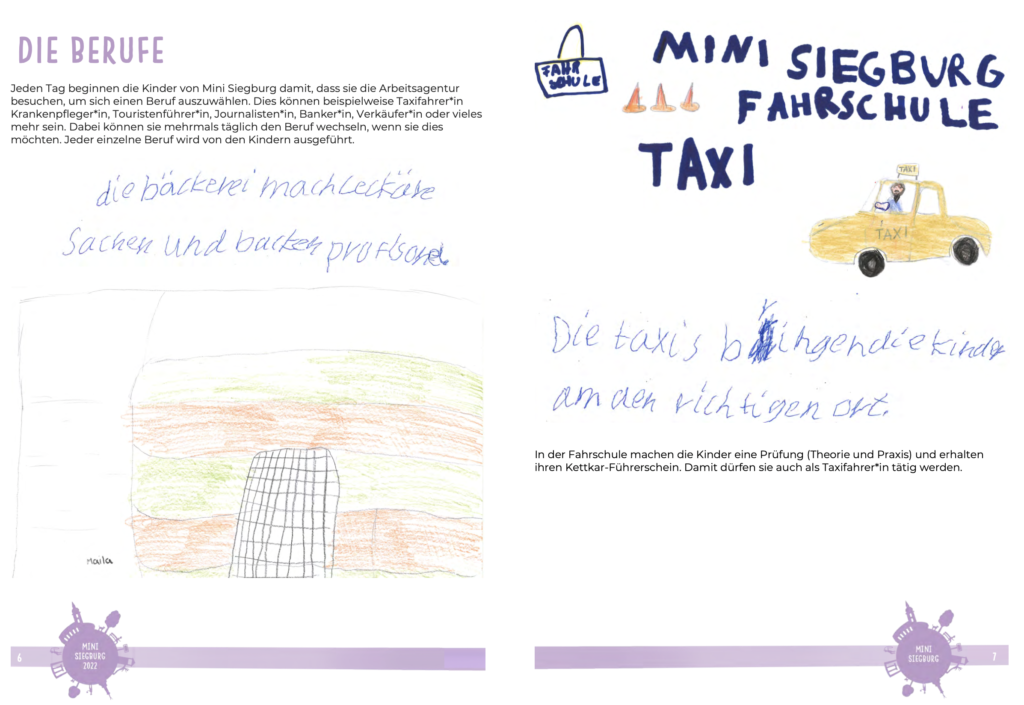 DIE BERUFE
Jeden Tag beginnen die Kinder von Mini Siegburg damit, dass sie die Arbeitsagentur
besuchen, um sich einen Beruf auszuwählen. Dies können beispielweise Taxifahrer*in
Krankenpfleger*in, Touristenführer*in, Journalisten*in, Banker*in, Verkäufer*in oder vieles
mehr sein. Dabei können sie mehrmals täglich den Beruf wechseln, wenn sie dies
möchten. Jeder einzelne Beruf wird von den Kindern ausgeführt.
die bäckerei mach leckäre
Sachen und backen
Maila
MINI
SIEGBURG
2022
6
FAHR
SCHULE
MINI SIEGBURG
FAHRSCHULE
TAXI
TAXI
TAXI
Die taxis bringen die kinder
am den richtigen ort.
In der Fahrschule machen die Kinder eine Prüfung (Theorie und Praxis) und erhalten
ihren Kettkar-Führerschein. Damit dürfen sie auch als Taxifahrer*in tätig werden.
MINI
SIEGBURG
7